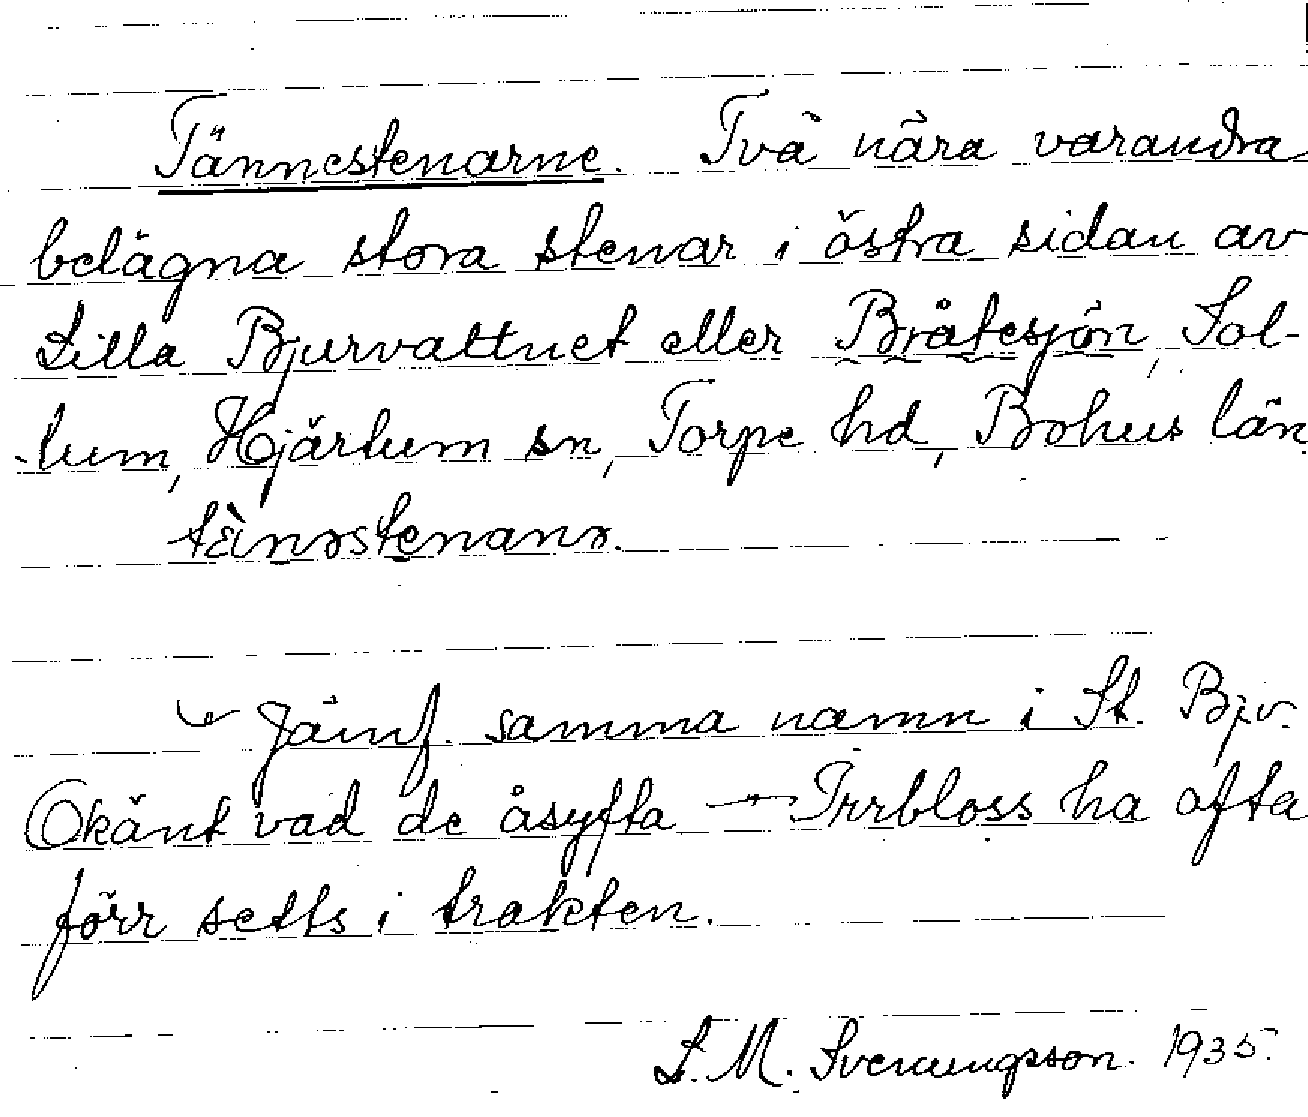 Tännestenarne. Två nära varandra
belägna stora stenar i östra sidan av
Lilla Bjurvattnet eller Bråtesjön, Sol-
lum, Hjärtum sn, Torpe hd, Bohus län
Jämf. samma namn i St. Bjv.
Okänt vad de åsyfta — Irrbloss ha ofta
förr setts i trakten.
L. M. Svenungsson. 1935.